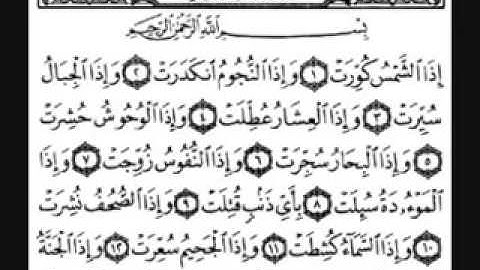 بِسْمِ ٱللَّهِ ٱلرَّحْمَٰنِ ٱلرَّحِيمِ
إِذَا ٱلشَّمْسُ كُوِّرَتْ ١ وَإِذَا ٱلنُّجُومُ ٱنكَدَرَتْ ٢ وَإِذَا ٱلْجِبَالُ
سُيِّرَتْ ٣ وَإِذَا ٱلْعِشَارُ عُطِّلَتْ ٤ وَإِذَا ٱلْوُحُوشُ حُشِرَتْ
٥ وَإِذَا ٱلْبِحَارُ سُجِّرَتْ ٦ وَإِذَا ٱلنُّفُوسُ زُوِّجَتْ ٧ وَإِذَا
ٱلْمَوْءُۥدَةُ سُئِلَتْ ٨ بِأَىِّ ذَنۢبٍ قُتِلَتْ ٩ وَإِذَا ٱلصُّحُفُ نُشِرَتْ
١٠ وَإِذَا ٱلسَّمَآءُ كُشِطَتْ ١١ وَإِذَا ٱلْجَحِيمُ سُعِّرَتْ ١٢ وَإِذَا ٱلْجَنَّةُ